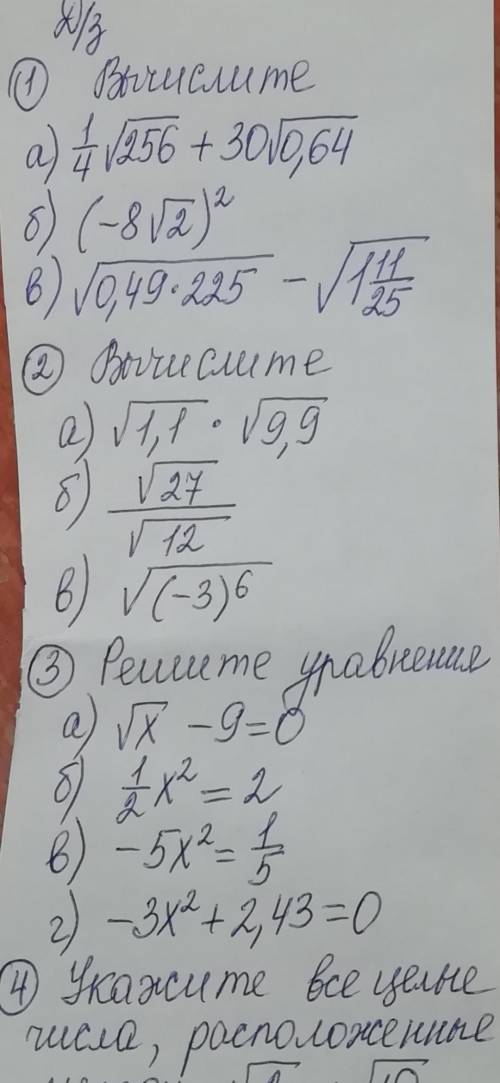 Д/з
① Вычислите
а) 1/4 √256 + 30√0,64
б) (-8√2)²
в) √(0,49·225) - √(1 11/25)
② Вычислите
а) √1,1 · √9,9
б) √27 / √12
в) √((-3)⁶)
③ Решите уравнения
а) √x - 9 = 0
б) 1/2 x² = 2
в) -5x² = 1/5
г) -3x² + 2,43 = 0
④ Укажите все целые
числа, расположенные